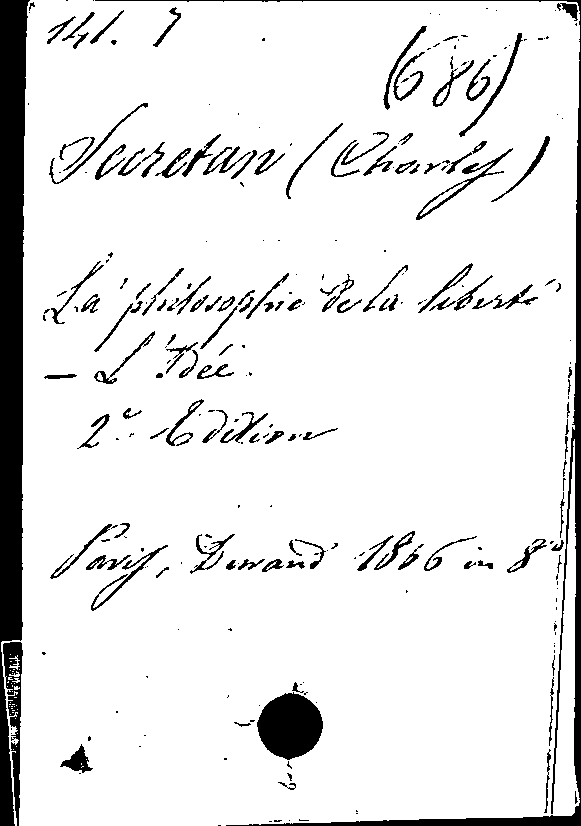 141. 7
(686)
Secretan (Charles)
La philosophie de la liberté
— L'Idée.
2e Edition
Paris, Durand 1866 in 8°